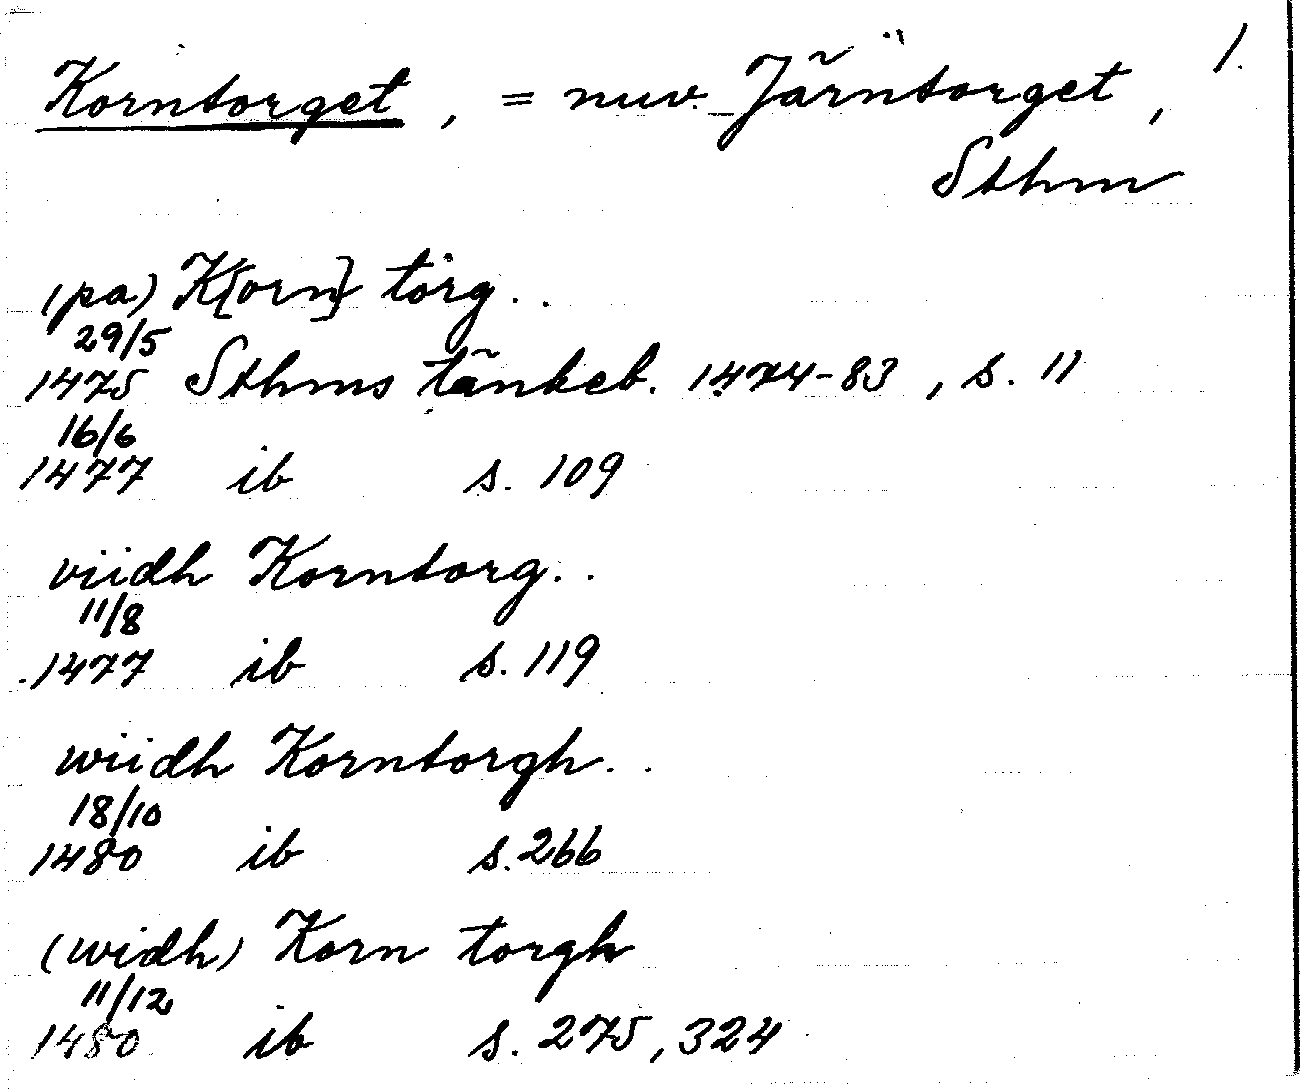 Korntorget, = nuv. Järntorget, 1.
Sthm
(pa) K[orn] torg..
29/5
1475 Sthms tänkeb. 1474-83, s. 11
16/6
1477 ib s. 109
viidh Korntorg..
11/8
1477 ib s. 119
wiidh Korntorgh..
18/10
1480 ib s. 266
(widh) Korn torgh
11/12
1480 ib s. 275, 324